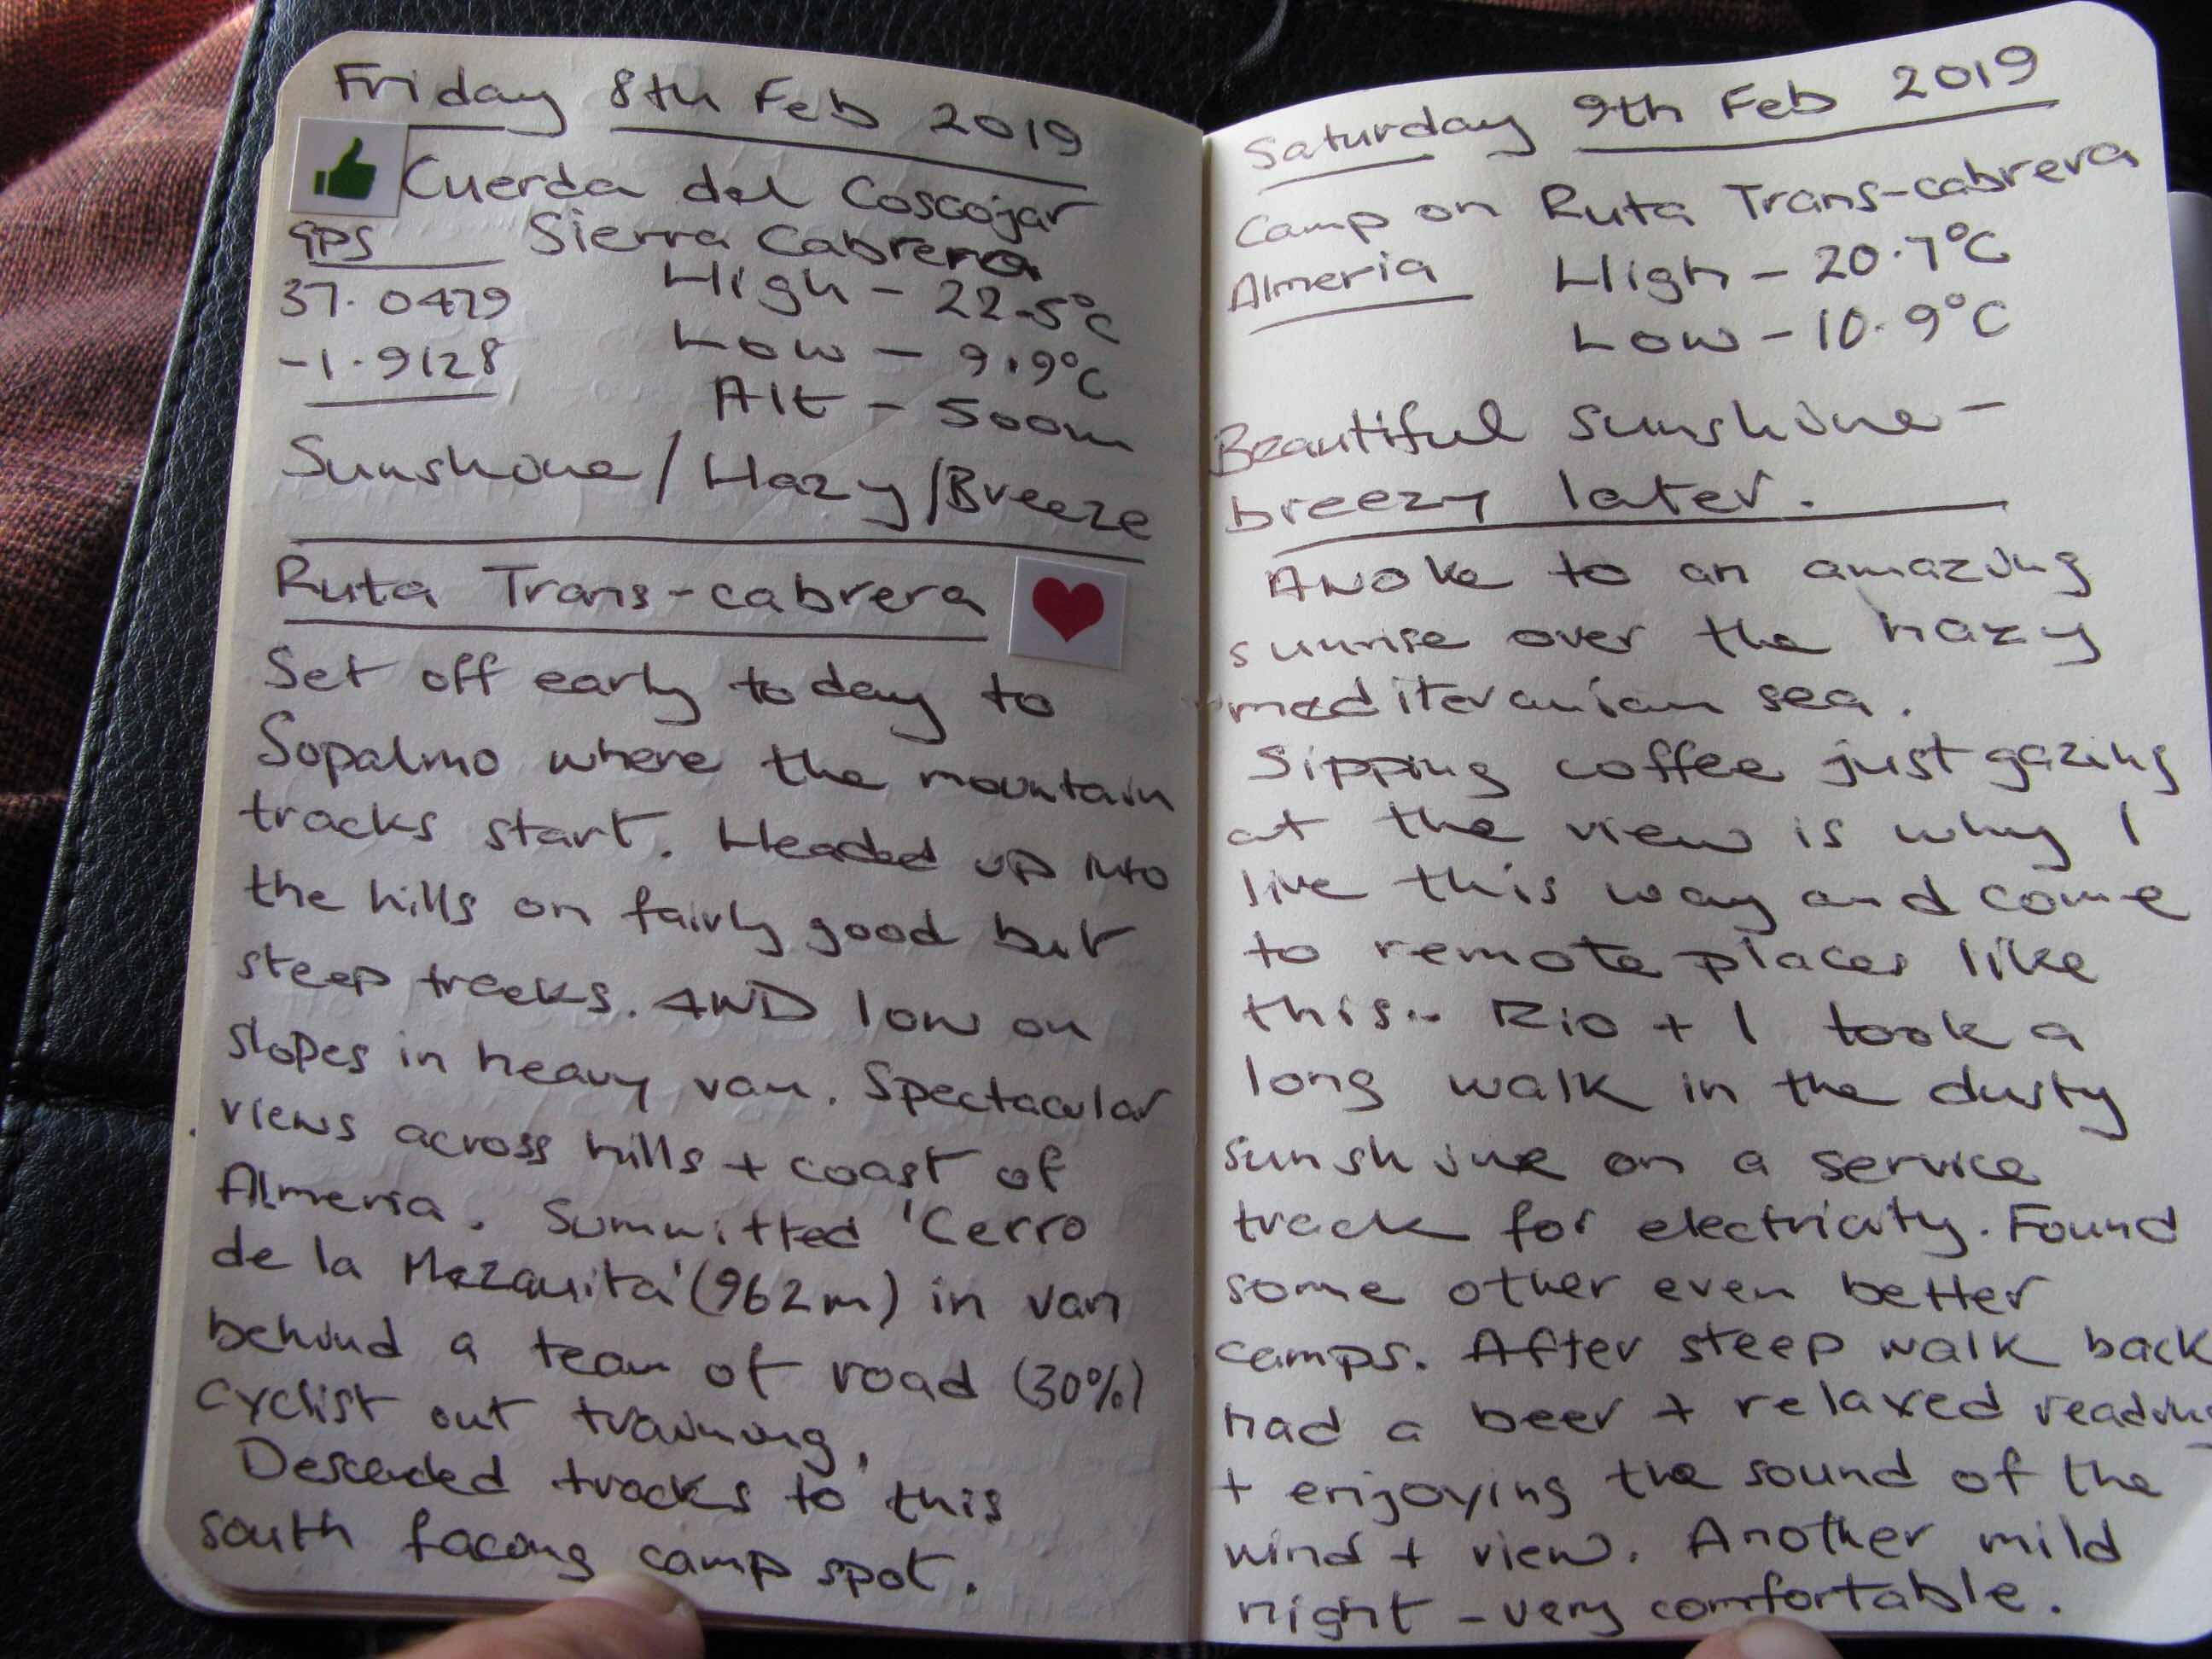 Friday 8th Feb 2019
Cuerda del Coscojar
GPS Sierra Cabrera
37.0479 High - 22.5°C
-1.9128 Low - 9.9°C
Alt - 500m
Sunshine / Hazy / Breeze
Ruta Trans-cabrera
Set off early today to
Sopalmo where the mountain
tracks start. Headed up into
the hills on fairly good but
steep tracks. AND low on
slopes in heavy van. Spectacular
views across hills + coast of
Almeria. Summitted 'Cerro
de la Mezquita' (962m) in van
behind a team of road (30%)
cyclist out training.
Descended tracks to this
south facing camp spot.
Saturday 9th Feb 2019
Camp on Ruta Trans-cabrera
Almeria High - 20.7°C
Low - 10.9°C
Beautiful sunshine -
breezy later.
Awoke to an amazing
sunrise over the hazy
mediteranian sea.
Sipping coffee just gazing
at the view is why I
live this way and come
to remote places like
this.. Rio + I took a
long walk in the dusty
sunshine on a service
track for electricity. Found
some other even better
camps. After steep walk back
had a beer + relaxed reading
+ enjoying the sound of the
wind + view. Another mild
night - very comfortable.